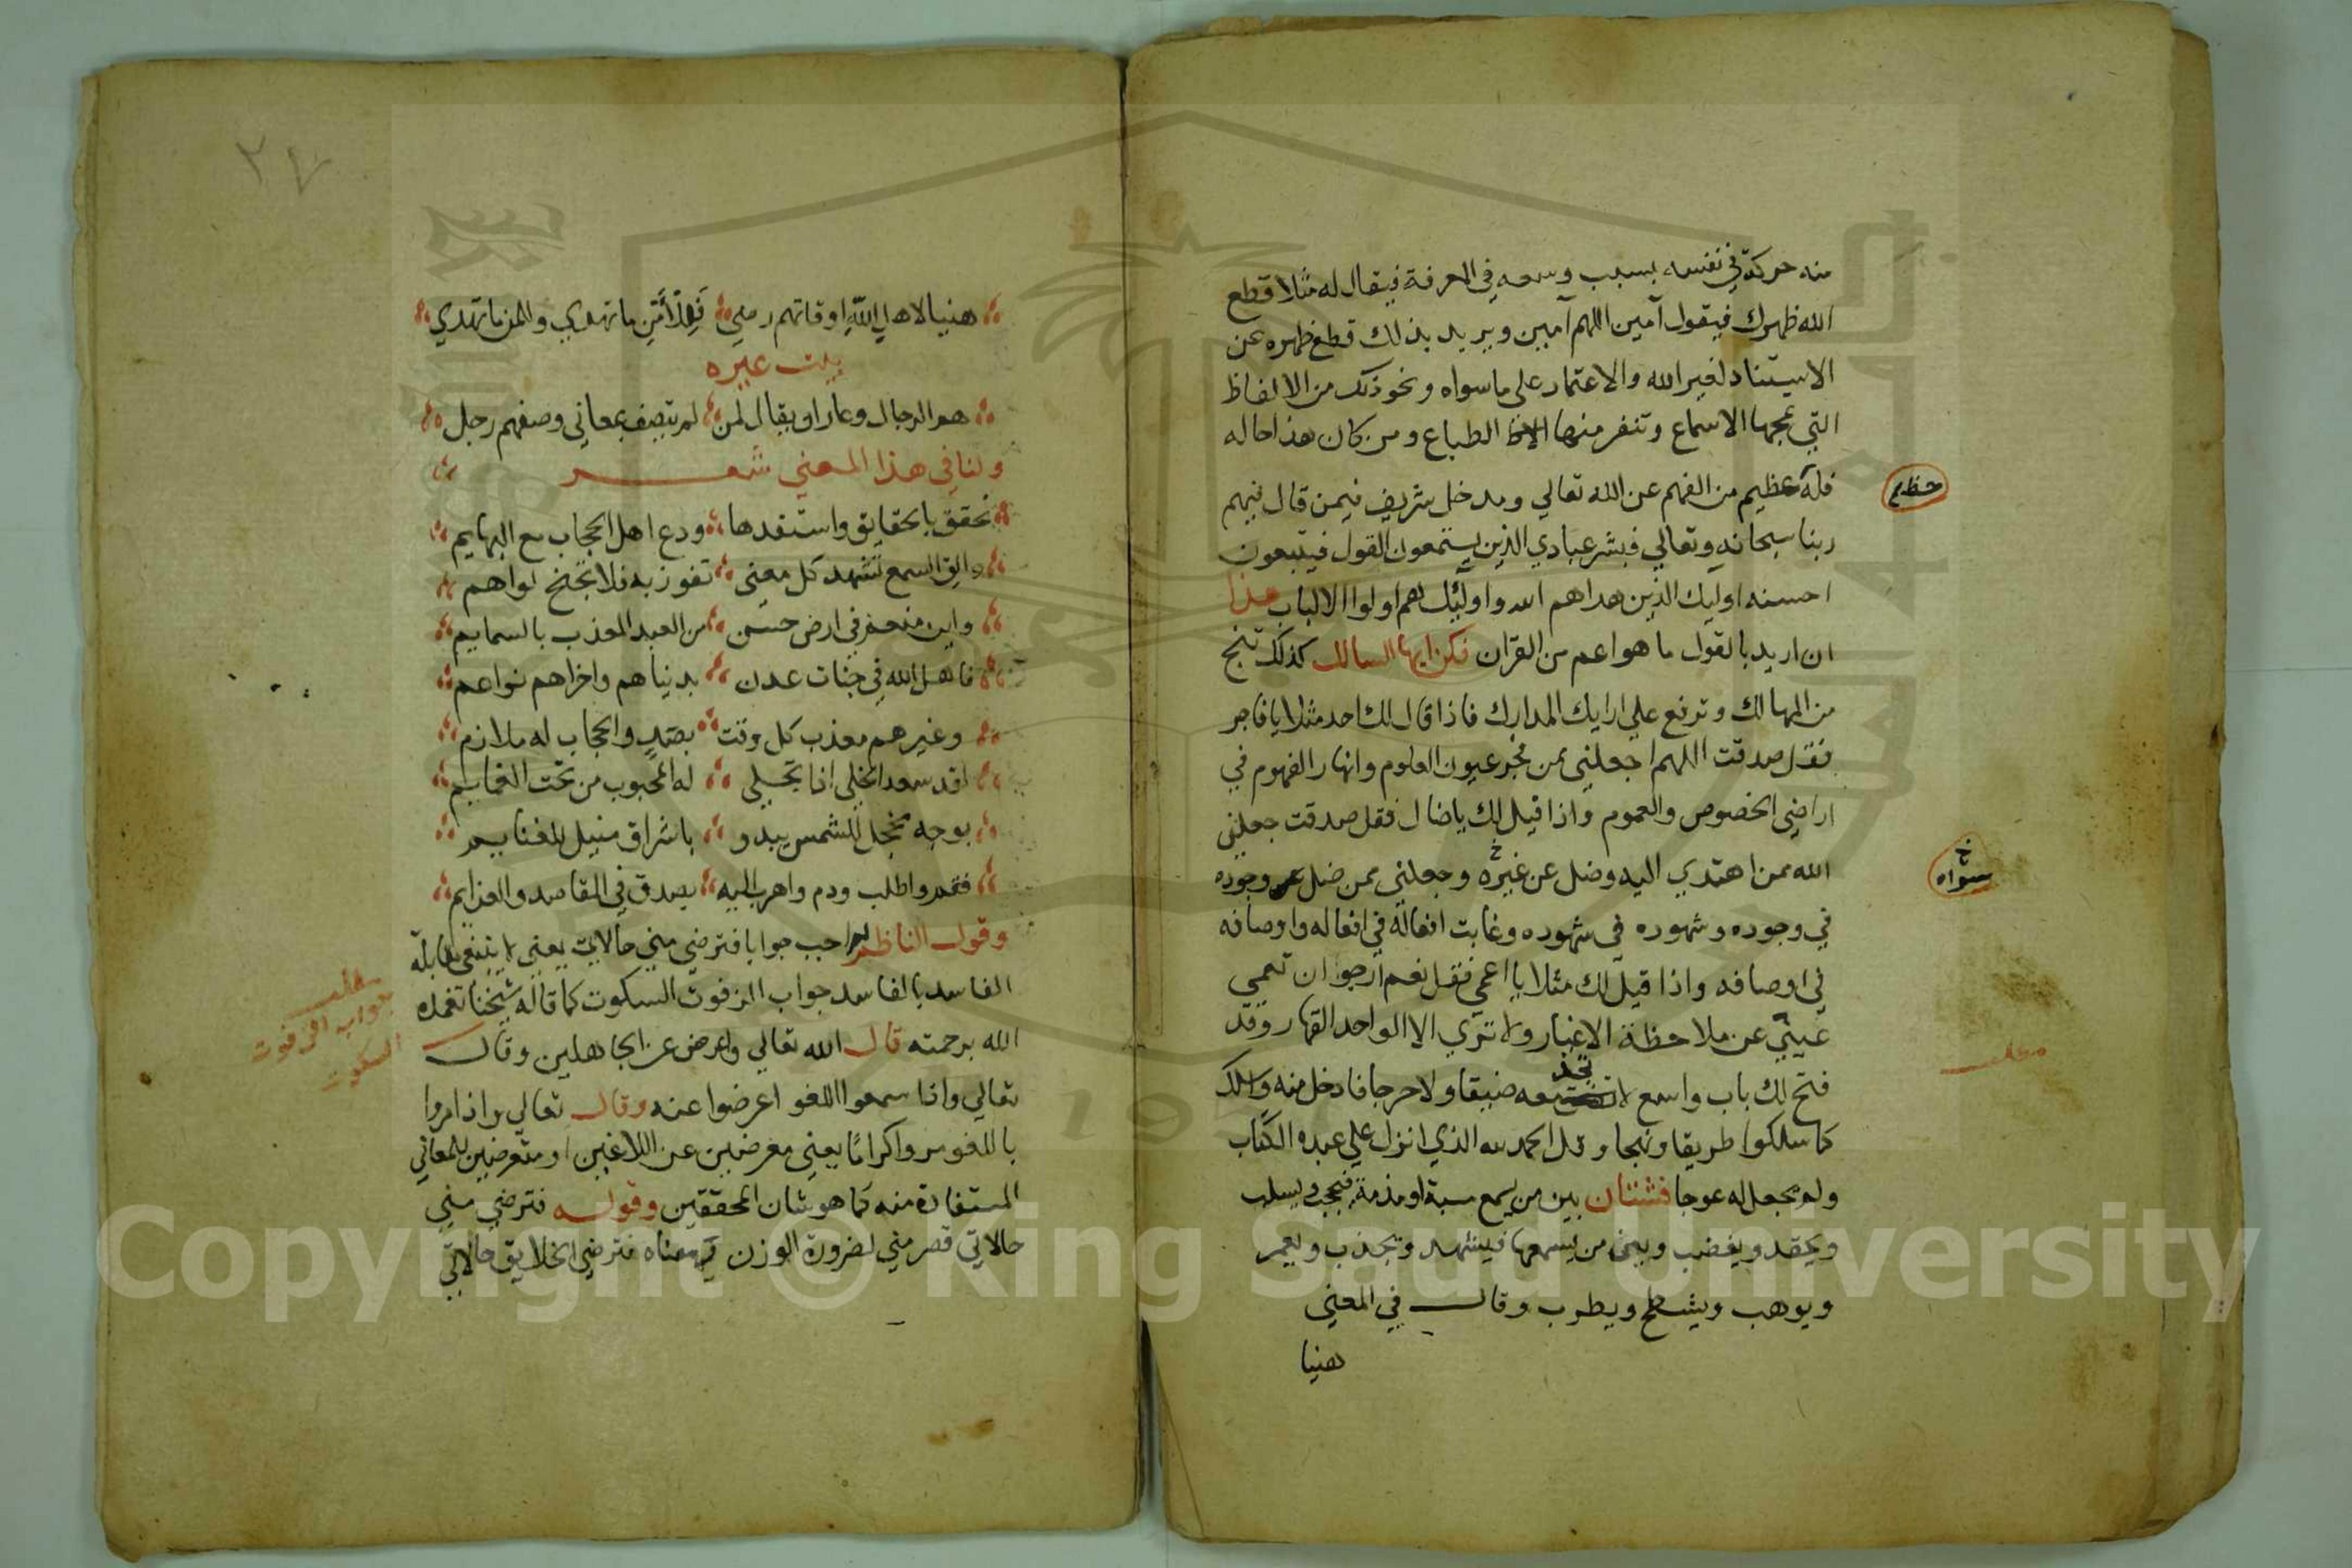 منه حركة في نفسه بسبب وسعه في المعرفة فيقال له مثلا قطع
الله ظهرك فيقول آمين اللهم آمين ويريد بذلك قطع ظهره عن
الاستناد لغير الله والاعتماد على ما سواه ونحو ذلك من الالفاظ
التي تمجها الاسماع وتنفر منها الطباع ومن كان هذا حاله
فله عظيم من الفهم عن الله تعالي ومدخل شريف فيمن قال فيهم
حظ
ربنا سبحانه وتعالي فبشر عبادي الذين يستمعون القول فيتبعون
احسنه اوليك الذين هداهم الله واوليك هم اولوا الالباب هذا
ان اريد بالقول ما هو اعم من القران فكن ايها السالك كذلك تنج
من المهالك وترفع علي ارايك المدارك فاذا قال لك احد مثلا يا فاجر
فقل صدقت اللهم اجعلني ممن فجر عيون العلوم وانهار الفهوم في
اراضي الخصوص والعموم واذا قيل لك يا ضال فقل صدقت جعلني
الله ممن اهتدي اليه وضل عن غيره وجعلني ممن ضل عن وجوده
خ
سواه
في وجوده وشهوده في شهوده وغابت افعاله في افعاله واوصافه
في اوصافه واذا قيل لك مثلا يا اعمي فقل نعم ارجوا ان تعمي
عيني عن ملاحظة الاغيار ولا تري الا الواحد القهار وقد
مطلب
فتح لك باب واسع لا تجد معه ضيقا ولا حرجا فادخل منه واسلك
كما سلكوا طريقا ونهجا وقل الحمد لله الذي انزل علي عبده الكتاب
ولم يجعل له عوجا فشتان بين من يسمع سبة او مذمة فيحجب ويسلب
ويحقد ويغضب وبين من يسمعها فيشهد ويجذب ويعمر
ويوهب ويشطح ويطرب وقال في المعني
هنيا
٢٧
هنيا لاهل الله اوقاتهم رضي فهذا متي ما تهدي والمن ما تهدي
بيت غيره
هم الرجال وعار ان يقال لمن لم يتصف بمعاني وصفهم رجل
ولنا في هذا المعني شعر
تحقق بالحقايق واستفدها ودع اهل الحجاب مع البهايم
والق السمع تشهد كل معني تفوز به فلا تجنح لواهم
واين منعم في ارض حسن من العبد المعذب بالسمايم
فاهل الله في جنات عدن بدنياهم واخراهم نواعم
وغيرهم معذب كل وقت بصد والحجاب له ملازم
لقد سعد الخلي اذا تجلي له المحبوب من تحت الغمايم
بوجه مخجل للشمس يبدو باشراق منيل للغنايم
فقم واطلب ودم واهرب اليه بصدق في المقاصد والعزايم
وقول الناظم احب جوابا فترضي مني حالاتي يعني لا ينبغي مقابلة
الفاسد بالفاسد جواب المزفوت السكوت كما قاله شيخنا تغمده
مطلب
جواب المزفوت
السكوت
الله برحمته قال الله تعالي واعرض عن الجاهلين وقال
تعالي واذا سمعوا اللغو اعرضوا عنه وقال تعالي واذا مروا
باللغو مروا كراما يعني معرضين عن اللاغين او متعرضين للمعاني
المستفادة منه كما هو شان المحققين وقوله فترضي مني
حالاتي قصر مني لضرورة الوزن معناه فترضي الخلايق حالاتي
Copyright © King Saud University